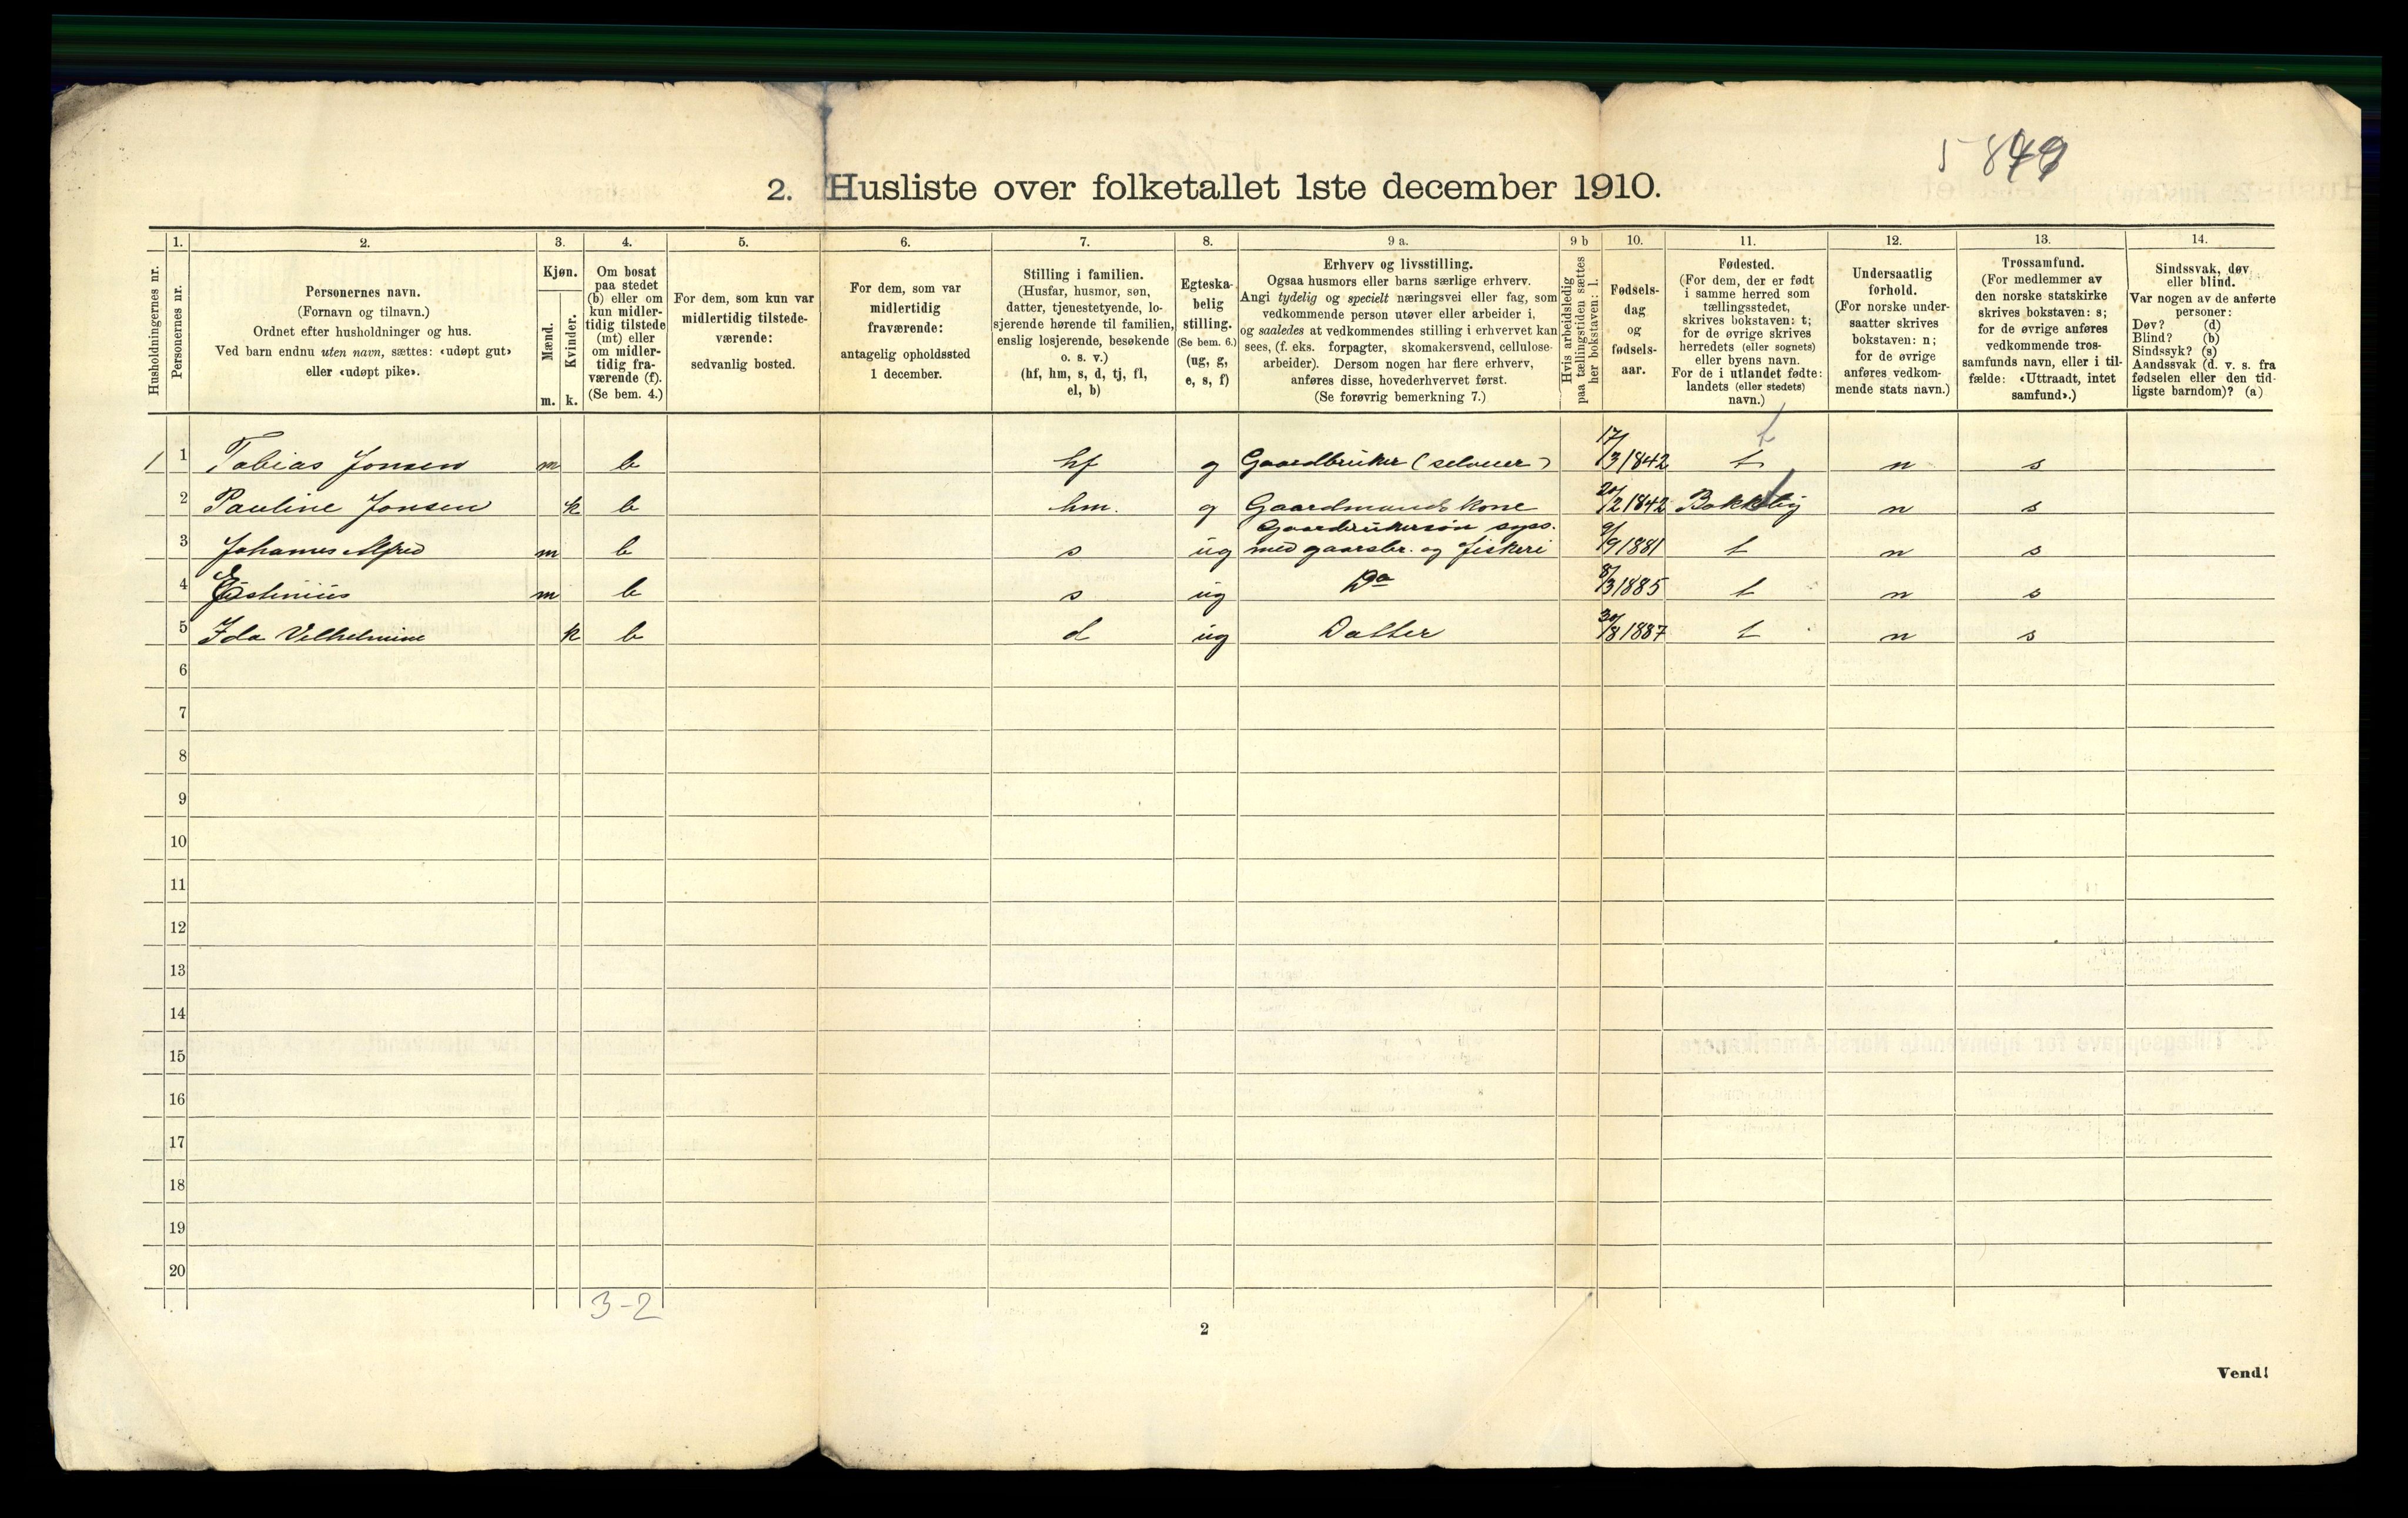 5 849
2. Husliste over folketallet 1ste december 1910.
Husholdningernes nr.
1.
Personernes nr.
2.
Personernes navn.
(Fornavn og tilnavn.)
Ordnet efter husholdninger og hus.
Ved barn endnu uten navn, sættes: «udøpt gut»
eller «udøpt pike».
3.
Kjøn.
Mænd.
m.
Kvinder.
k.
4.
Om bosat
paa stedet
(b) eller om
kun midler-
tidig tilstede
(mt) eller
om midler-
tidig fra-
værende (f).
(Se bem. 4.)
5.
For dem, som kun var
midlertidig tilstede-
værende:
sedvanlig bosted.
6.
For dem, som var
midlertidig
fraværende:
antagelig opholdssted
1 december.
7.
Stilling i familien.
(Husfar, husmor, søn,
datter, tjenestetyende, lo-
sjerende hørende til familien,
enslig losjerende, besøkende
o. s. v.)
(hf, hm, s, d, tj, fl,
el, b)
8.
Egteska-
belig
stilling.
(Se bem. 6.)
(ug, g,
e, s, f)
9 a.
Erhverv og livsstilling.
Ogsaa husmors eller barns særlige erhverv.
Angi tydelig og specielt næringsvei eller fag, som
vedkommende person utøver eller arbeider i,
og saaledes at vedkommendes stilling i erhvervet kan
sees, (f. eks. forpagter, skomakersvend, cellulose-
arbeider). Dersom nogen har flere erhverv,
anføres disse, hovederhvervet først.
(Se forøvrig bemerkning 7.)
9 b
Hvis arbeidsledig
paa tællingstiden sættes
her bokstaven: l.
10.
Fødsels-
dag
og
fødsels-
aar.
11.
Fødested.
(For dem, der er født
i samme herred som
tællingsstedet,
skrives bokstaven: t;
for de øvrige skrives
herredets (eller sognets)
eller byens navn.
For de i utlandet fødte:
landets (eller stedets)
navn.)
12.
Undersaatlig
forhold.
(For norske under-
saatter skrives
bokstaven: n;
for de øvrige
anføres vedkom-
mende stats navn.)
13.
Trossamfund.
(For medlemmer av
den norske statskirke
skrives bokstaven: s;
for de øvrige anføres
vedkommende tros-
samfunds navn, eller i til-
fælde: «Uttraadt, intet
samfund».)
14.
Sindssvak, døv
eller blind.
Var nogen av de anførte
personer:
Døv? (d)
Blind? (b)
Sindssyk? (s)
Aandssvak (d. v. s. fra
fødselen eller den tid-
ligste barndom)? (a)
t
1 1 Tobias Jonsen m b hf g Gaardbruker (selveier) 17/3 1842 t n s
2 Pauline Jonsen k b hm. g Gaardmands kone 20/2 1842 n s
3 Johannes Alfred m b s ug Gaardbrukersøn syss.
med gaarsbr. og fiskeri 9/9 1881 t n s
4 m b s ug Do 8/3 1885 t n s
5 Ida Vilhelmine k b d ug Datter 30/8 1887 t n s
6
7
8
9
10
11
12
13
14
15
16
17
18
19
20
3-2
2
Vend!